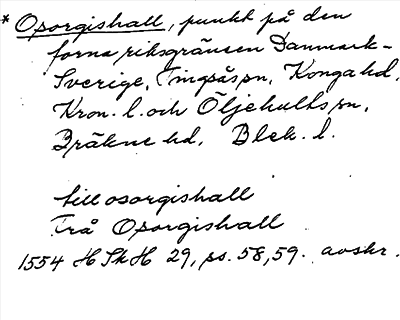 * Oporgishall, punkt på den
forna riksgränsen Danmark-
Sverige, Tingsås sn, Konga hd,
Kron. l. och Öljehults sn,
Bräkne hd, Blek. l.
till osorgishall
Frå Oporgishall
1554 HSkH 29, ps. 58, 59. avskr.